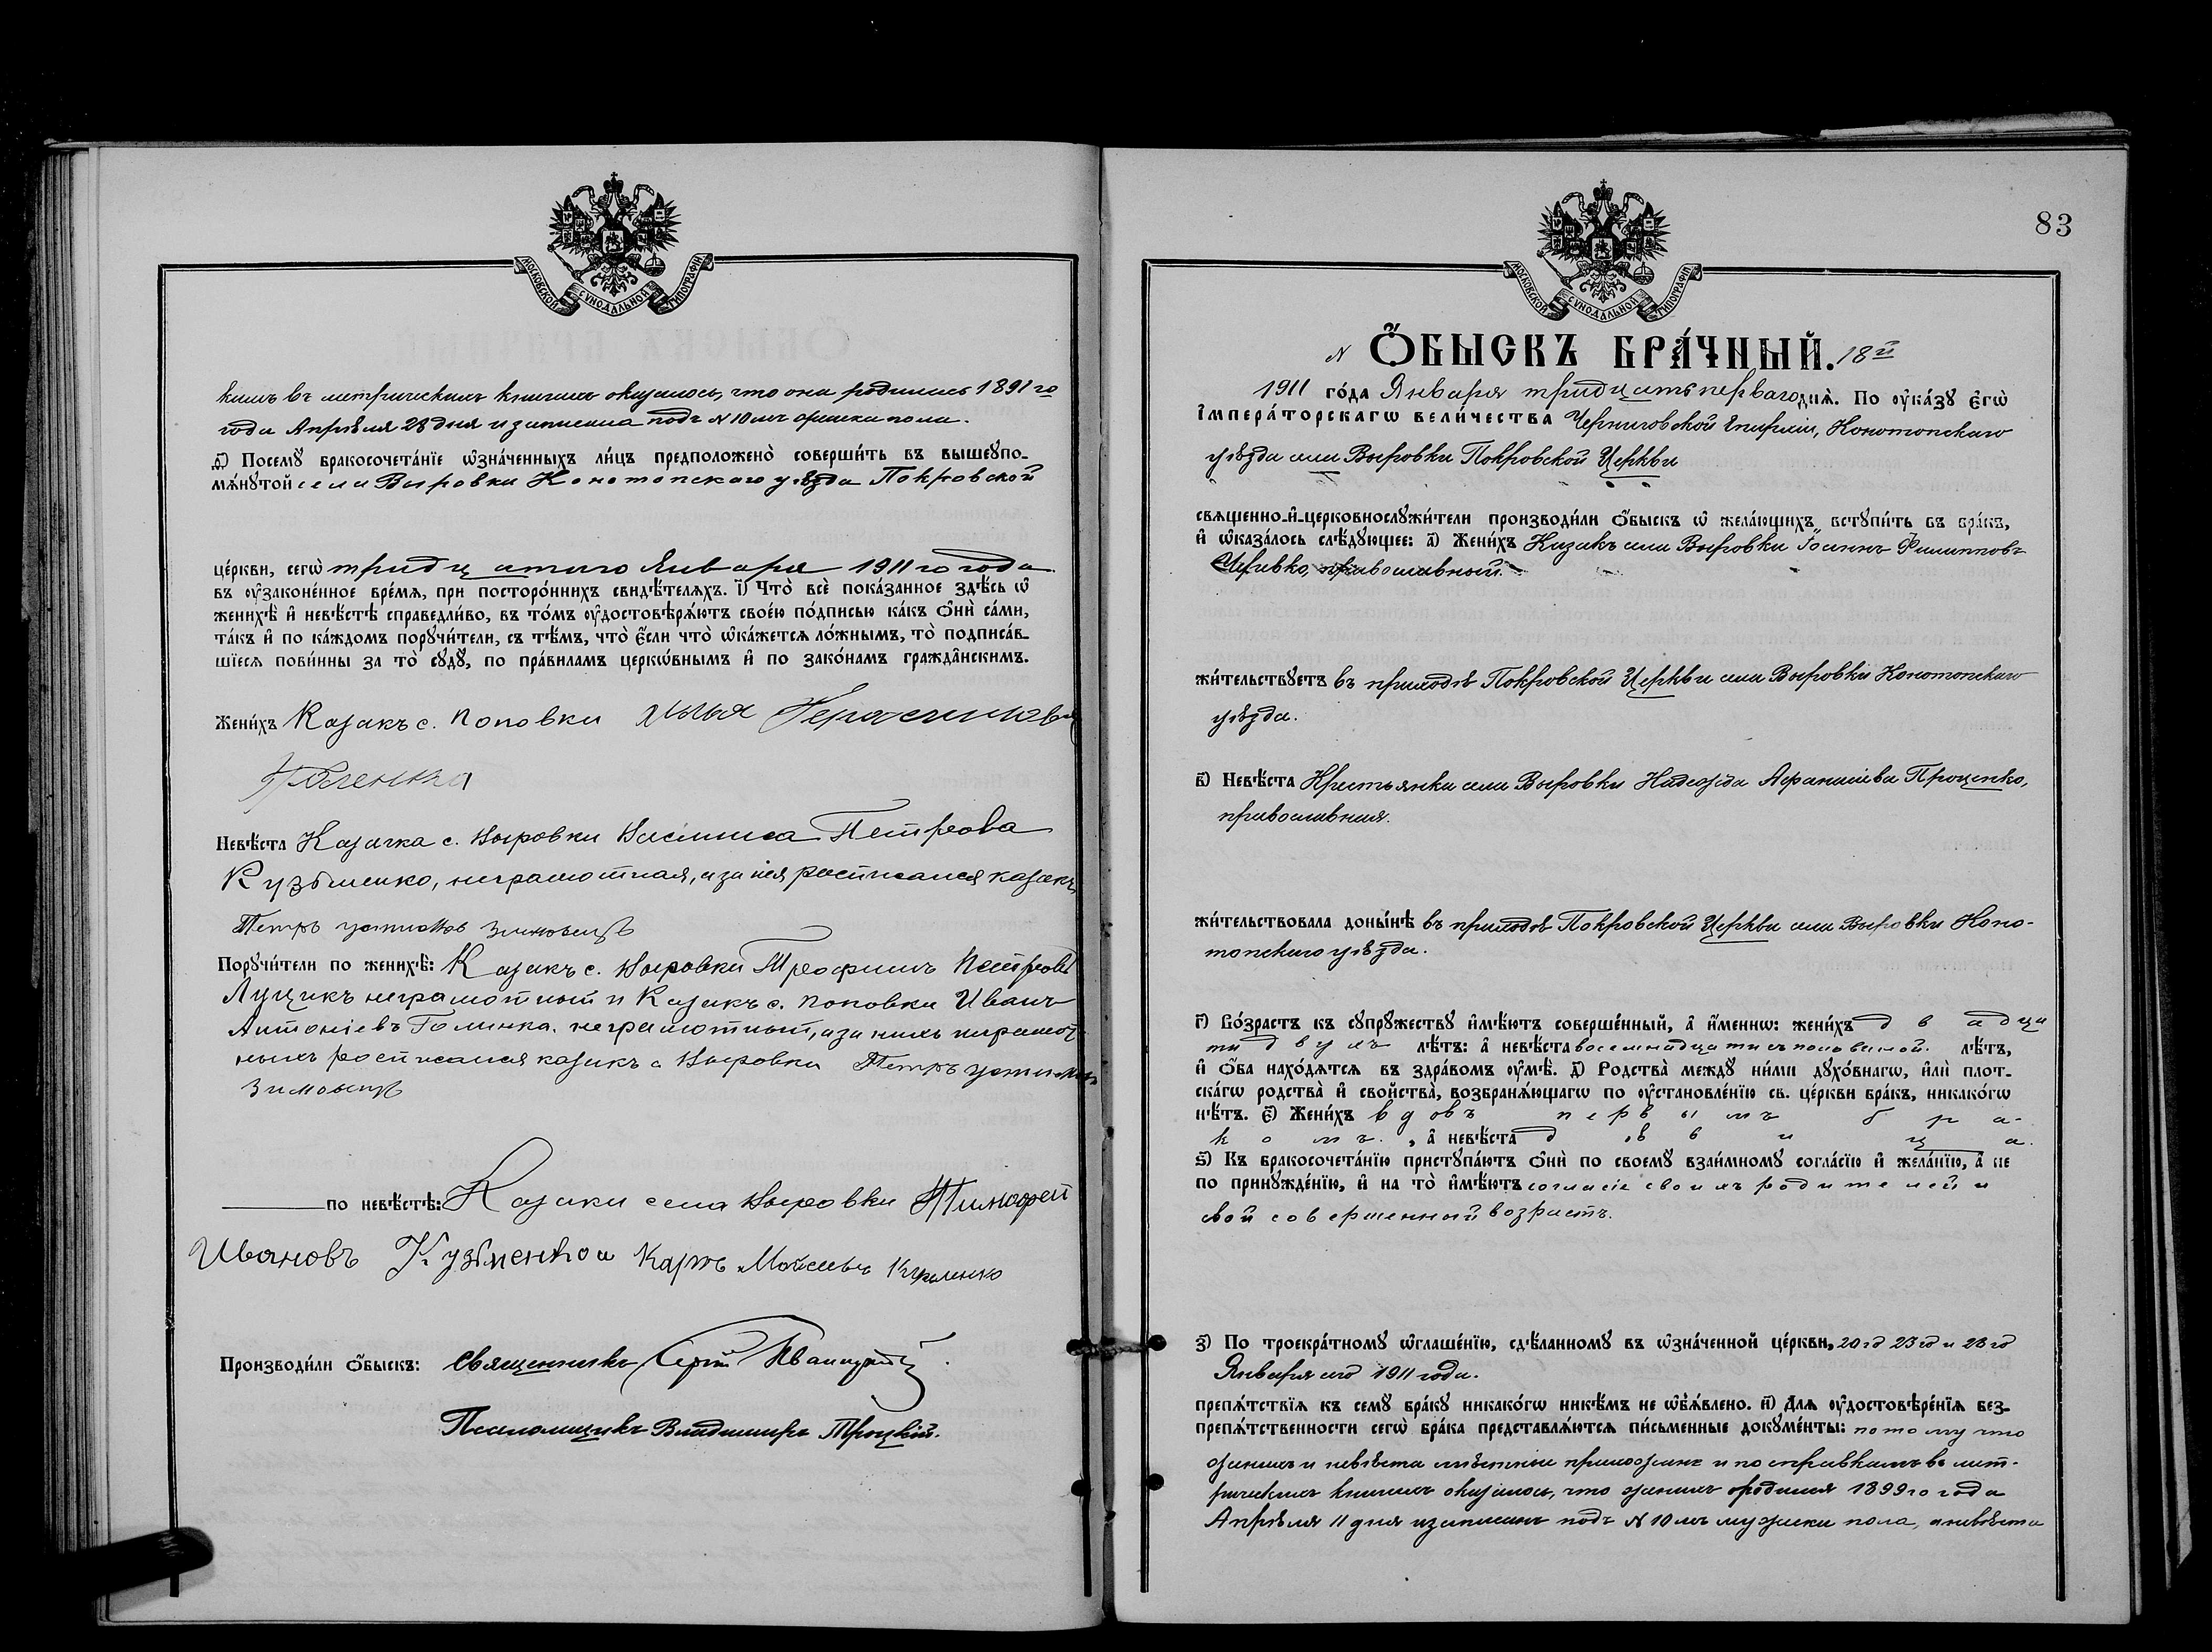 МОСКОВСКОЙ СѴНОДАЛЬНОЙ ТИПОГРАФІИ
кимъ въ метрическихъ книгахъ оказалось, что она родилась 1891 го
года Апрѣля 28 дня и записана подъ N 10 мъ женска пола.
ѳ҃) Посемꙋ̀ бракосочета́нїе ѡ҆зна́ченныхъ ли́цъ предположено̀ соверши́ть въ вышеꙋпо-
мѧ́нꙋтой села Выровки Конотопскаго уѣзда Покровской
це́ркви, сегѡ̀ тридцатаго Января 1911 го года
въ ᲂу҆зако́ненное вре́мѧ, при посторо́ннихъ свидѣ́телѧхъ. і҃) Что̀ всѐ пока́занное здѣ́сь ѡ҆
женихѣ̀ и҆ невѣ́стѣ справедли́во, въ то́мъ ᲂу҆достовѣрѧ́ютъ свое́ю по́дписью ка́къ ѻ҆нѝ са́ми,
та́къ и҆ по ка́ждомъ порꙋчи́тели, съ тѣ́мъ, что̀ є҆́сли что̀ ѡ҆ка́жетсѧ ло́жнымъ, то̀ подписа́в-
шїесѧ пови́нны за то̀ сꙋдꙋ̀, по пра́виламъ церкѡ́внымъ и҆ по зако́намъ гражда̑нскимъ.
Жени́хъ Казакъ с. Поповки Илья Герасимовъ
Невѣ́ста Казачка с. Выровки Васлиса Петрова
Кузьменко, неграмотная, а за нея росписался казакъ
Петръ Устимовъ Зиновецъ
Порꙋчи́тели по женихѣ̀: Казакъ с. Выровки Трофимъ Петровъ
Луцикъ неграмотный и Казакъ с. Поповки Иванъ
Антоніевъ Голинка. неграмотный, а за нихъ неграмот-
ныхъ росписался казакъ с Выровки Петръ Устимовъ
по невѣ́стѣ: Казаки села Выровки Тимофей
Ивановъ Кузьменко и Карпъ Мойсеевъ
Производи́ли ѻ҆́быскъ: Священникъ Сергій
Псаломщикъ Владимиръ Троцкій.
83
МОСКОВСКОЙ СѴНОДАЛЬНОЙ ТИПОГРАФІИ
N Ѻ҆́БЫСКЪ БРА́ЧНЫЙ. 18 й
1911 го́да Января тридцать перваго днѧ̀. По ᲂу҆ка́зꙋ є҆гѡ̀
І҆мпера́торскагѡ вели́чества Черниговской Епархіи, Конотопскаго
уѣзда села Выровки Покровской Церкви
свѧщенно-и҆-церковнослꙋжи́тели производи́ли ѻ҆́быскъ ѡ҆ жела́ющихъ встꙋпи́ть въ бра́къ,
и҆ ѡ҆каза́лось слѣ́дꙋющее: а҃) Жени́хъ Казакъ села Выровки Іоаннъ Филипповъ
православный.
жи́тельствꙋетъ въ приходѣ Покровской Церкви села Выровки Конотопскаго
уѣзда.
в҃) Невѣ́ста Крестьянка села Выровки Надежда Афанасіева Проценко,
православная.
жи́тельствовала доны́нѣ въ приходѣ Покровской Церкви села Выровки Коно-
топскаго уѣзда.
г҃) Во́зрастъ къ сꙋпрꙋ́жествꙋ и҆мѣ́ютъ соверше́нный, а҆ и҆́меннѡ: жени́хъ двадца
ти двухъ лѣ́тъ: а҆ невѣ́ста восемнадцати съ половиной. лѣ́тъ,
и҆ ѻ҆́ба нахо́дѧтсѧ въ здра́вомъ ᲂу҆мѣ̀. д҃) Родства̀ междꙋ̀ ни́ми дꙋхо́внагѡ, и҆лѝ плот-
ска́гѡ родства̀ и҆ сво́йства, возбранѧ́ющагѡ по ᲂу҆становле́нїю св. це́ркви бра́къ, никако́гѡ
нѣ́тъ. є҃) Жени́хъ вдовъ первымъ бра-
комъ., а҆ невѣ́ста дѣвица.
ѕ҃) Къ бракосочета́нїю пристꙋпа́ютъ ѻ҆нѝ по своемꙋ̀ взаи́мномꙋ согла́сїю и҆ жела́нїю, а҆ не
по принꙋжде́нїю, и҆ на то̀ и҆мѣ́ютъ согласіе своихъ родителей и
свой совершенный возрастъ.
з҃) По троекра́тномꙋ ѡ҆глаше́нїю, сдѣ́ланномꙋ въ ѡ҆зна́ченной це́ркви, 20 го 23 го и 28 го
Января сего 1911 года.
препѧ́тствїѧ къ семꙋ̀ бра́кꙋ никако́гѡ никѣ́мъ не ѡ҆б̾ѧ́влено. и҃) Длѧ ᲂу҆достовѣре́нїѧ без-
препѧ́тственности сегѡ̀ бра́ка представлѧ́ютсѧ пи́сьменные докꙋме́нты: потому что
женихъ и невѣста мѣстные прихожане и по справкамъ въ мет-
рическихъ книгахъ оказалось, что женихъ родился 1899 го года
Апрѣля 11 дня и записанъ подъ N 10 мъ мужеска пола, а невѣста